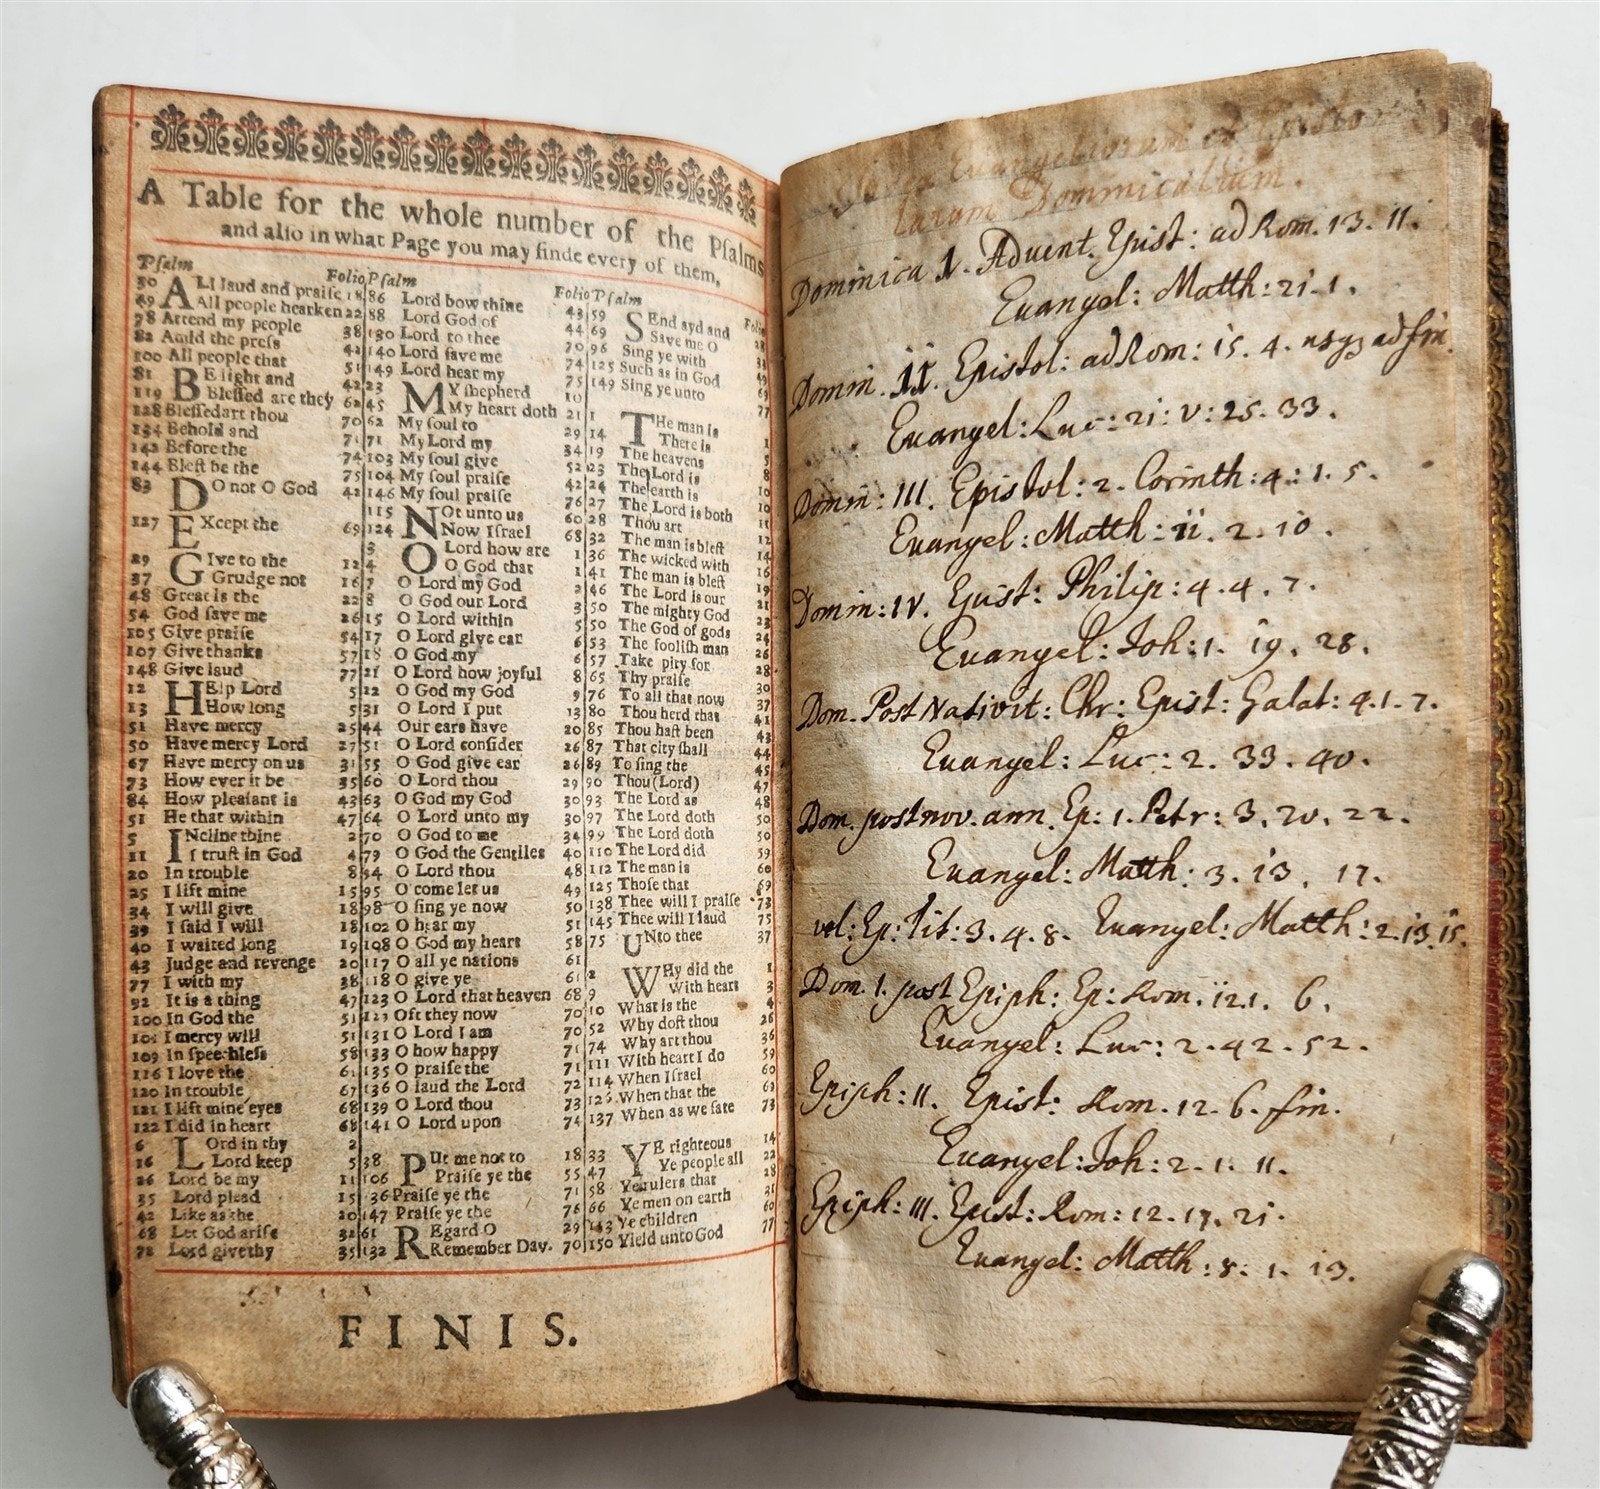 A Table for the whole number of the Pſalms
and alſo in what Page you may finde every of them,
Pſalm Folio
50 ALl laud and praiſe 18
49 All people hearken 22
78 Attend my people 38
82 Amid the preſs 42
100 All people that 51
81 BE light and 42
119 Bleſſed are they 62
128 Bleſſed art thou 70
134 Behold and 71
142 Before the 74
144 Bleſt be the 75
83 DO not O God 42
127 EXcept the 69
29 GIve to the 12
37 Grudge not 16
48 Great is the 22
54 God ſave me 26
105 Give praiſe 54
107 Give thanks 57
148 Give laud 77
12 HElp Lord 5
13 How long 5
51 Have mercy 25
50 Have mercy Lord 27
67 Have mercy on us 31
73 How ever it be 35
84 How pleaſant is 43
51 He that within 47
5 INcline thine 2
11 I truſt in God 4
20 In trouble 8
25 I lift mine 15
34 I will give 18
39 I ſaid I will 18
40 I waited long 19
43 Judge and revenge 20
77 I with my 38
92 It is a thing 47
100 In God the 51
101 I mercy will 51
109 In ſpeechleſs 58
116 I love the 61
120 In trouble 67
121 I lift mine eyes 68
122 I did in heart 68
6 LOrd in thy 2
16 Lord keep 5
26 Lord be my 11
35 Lord plead 15
42 Like as the 20
68 Let God ariſe 32
72 Lord give thy 35
Pſalm Folio
86 Lord bow thine 43
88 Lord God of 44
130 Lord to thee 70
140 Lord ſave me 74
149 Lord hear my 75
23 MY ſhepherd 10
45 My heart doth 21
62 My ſoul to 29
71 My Lord my 34
103 My ſoul give 52
104 My ſoul praiſe 42
146 My ſoul praiſe 76
115 NOt unto us 60
124 Now Iſrael 68
3 O Lord how are 1
4 O God that 1
7 O Lord my God 2
8 O God our Lord 3
15 O Lord within 5
17 O Lord give ear 6
18 O God my 6
21 O Lord how joyful 8
22 O God my God 9
31 O Lord I put 13
44 Our ears have 20
51 O Lord conſider 26
55 O God give ear 26
60 O Lord thou 29
63 O God my God 30
64 O Lord unto my 30
70 O God to me 34
79 O God the Gentiles 40
94 O Lord thou 48
95 O come let us 49
98 O ſing ye now 50
102 O hear my 51
108 O God my heart 58
117 O all ye nations 61
118 O give ye 61
123 O Lord that heaven 68
Oft they now 70
131 O Lord I am 70
133 O how happy 71
135 O praiſe the 71
136 O laud the Lord 72
139 O Lord thou 73
141 O Lord upon 74
38 PUt me not to 18
106 Praiſe ye the 55
136 Praiſe ye the 71
147 Praiſe ye the 76
61 REgard O 29
132 Remember Dav. 70
Pſalm
59 SEnd ayd and
69 Save me O
96 Sing ye with
125 Such as in God
149 Sing ye unto 77
1 THe man is 1
14 There is 5
19 The heavens
23 The Lord is
24 The earth is 10
27 The Lord is both
28 Thou art 11
32 The man is bleſt 12
36 The wicked with 14
41 The man is bleſt 16
46 The Lord is our 19
50 The mighty God 21
50 The God of gods 23
53 The fooliſh man 24
57 Take pity for 26
65 Thy praiſe 28
76 To all that now 30
80 Thou herd that 37
85 Thou haſt been 41
87 That city ſhall 43
89 To ſing the 44
90 Thou (Lord) 45
93 The Lord as 47
97 The Lord doth 48
99 The Lord doth 50
110 The Lord did 50
112 The man is 59
125 Thoſe that 60
138 Thee will I praiſe 73
145 Thee will I laud 75
75 UNto thee 37
2 WHy did the 1
9 With heart 3
10 What is the 4
52 Why doſt thou 26
74 Why art thou 36
111 With heart I do 59
114 When Iſrael 60
When that the 69
137 When as we ſate 73
33 YE righteous 14
47 Ye people all 22
58 Ye rulers that 28
66 Ye men on earth 31
Ye children 60
150 Yield unto God 77
FINIS.
Index Euangeliorum et Episto
larum Dominicalium.
Dominica 1. Aduent. Epist: ad Rom. 13. 11.
Euangel: Matth: 21. 1.
Domin. II. Epistol: ad Rom: 15. 4. usq; ad fin.
Euangel: Luc: 21: v: 25. 33.
Domin: III. Epistol: 2. Corinth: 4: 1. 5.
Euangel: Matth: 11. 2. 10.
Domin: IV. Epist: Philip: 4. 4. 7.
Euangel: Joh: 1. 19. 28.
Dom. Post Nativit: Chr: Epist: Galat: 4. 1. 7.
Euangel: Luc: 2. 33. 40.
Dom. post nov. ann. Ep: 1. Petr: 3. 20. 22.
Euangel: Matth: 3. 13. 17.
vel: Ep: Tit: 3. 4. 8. Euangel: Matth: 2. 13. 15.
Dom. 1. post Epiph: Ep: Rom. 12. 1. 6.
Euangel: Luc: 2. 42. 52.
Epiph: II. Epist: Rom. 12. 6. fin.
Euangel: Joh: 2. 1. 11.
Epiph: III. Epist: Rom: 12. 17. 21.
Euangel: Matth: 8. 1. 13.